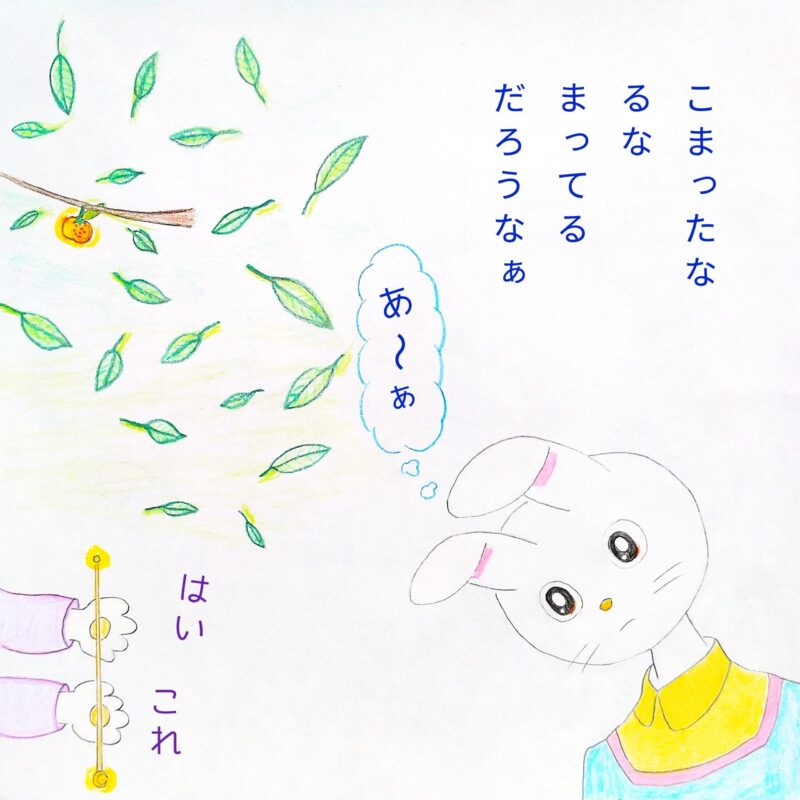 こまったな
るな
まってる
だろうなぁ
あ～ぁ
はい
これ